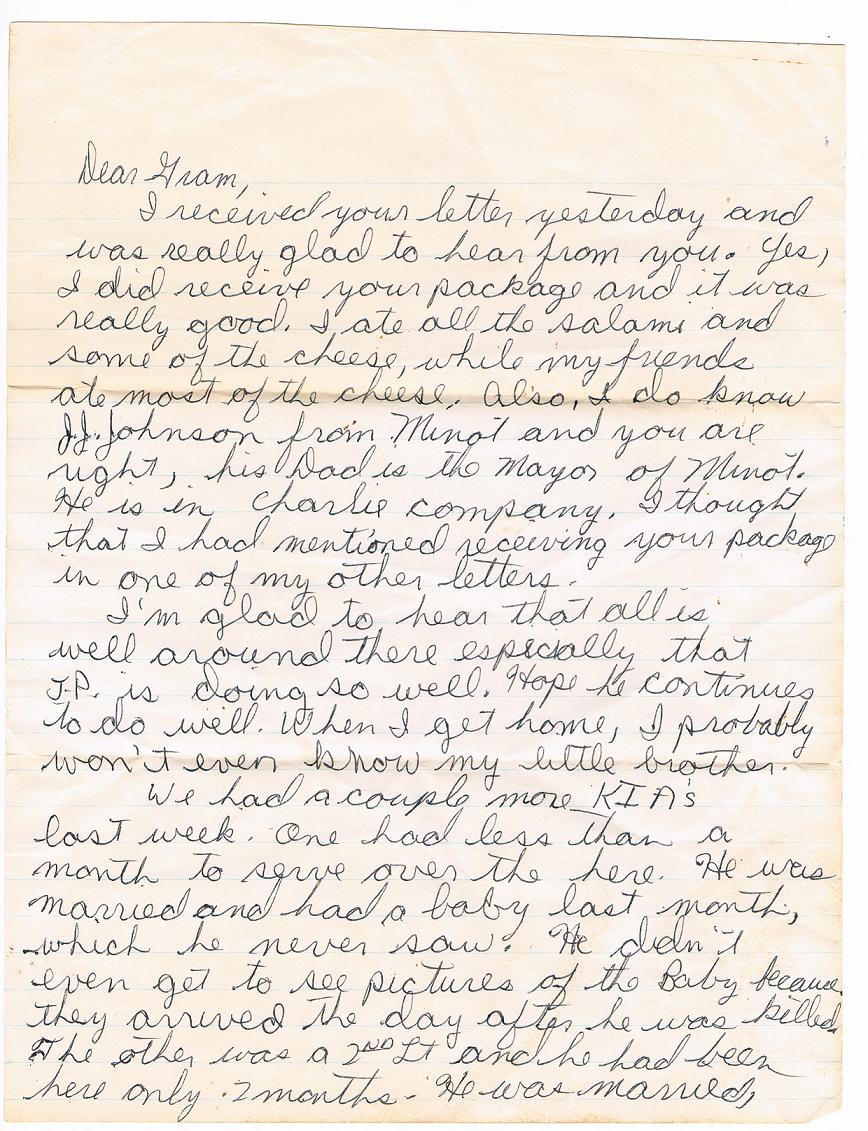 Dear Gram,
I received your letter yesterday and
was really glad to hear from you. Yes,
I did receive your package and it was
really good. I ate all the salami and
some of the cheese, while my friends
ate most of the cheese. Also, I do know
J.J. Johnson from Minot and you are
right, his Dad is the Mayor of Minot.
He is in Charlie company. I thought
that I had mentioned receiving your package
in one of my other letters.
I'm glad to hear that all is
well around there especially that
J.P. is doing so well. Hope he continues
to do well. When I get home, I probably
won't even know my little brother.
We had a couple more KIA's
last week. One had less than a
month to serve over the here. He was
married and had a baby last month,
which he never saw. He didn't
even get to see pictures of the Baby because
they arrived the day after he was killed.
The other was a 2ND Lt and he had been
here only 2 months. He was married,